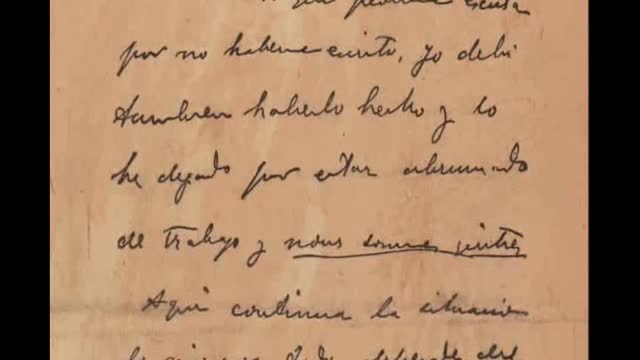 por no haberme escrito, yo debí
también haberlo hecho y lo
he dejado por estar abrumado
de trabajo y nous sommes quittes
Aquí continua la situación